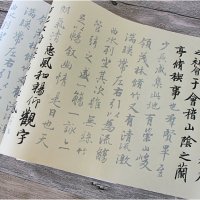 會于會稽山陰之蘭
亭脩稧事也群賢畢至
少長咸集此地有崇山峻
領茂林脩竹又有清流激
湍暎帶左右引以為
曲水列坐其次雖無絲竹
管弦之盛一觴一詠
敘幽情是日也天
朗氣清
惠風和暢仰觀宇